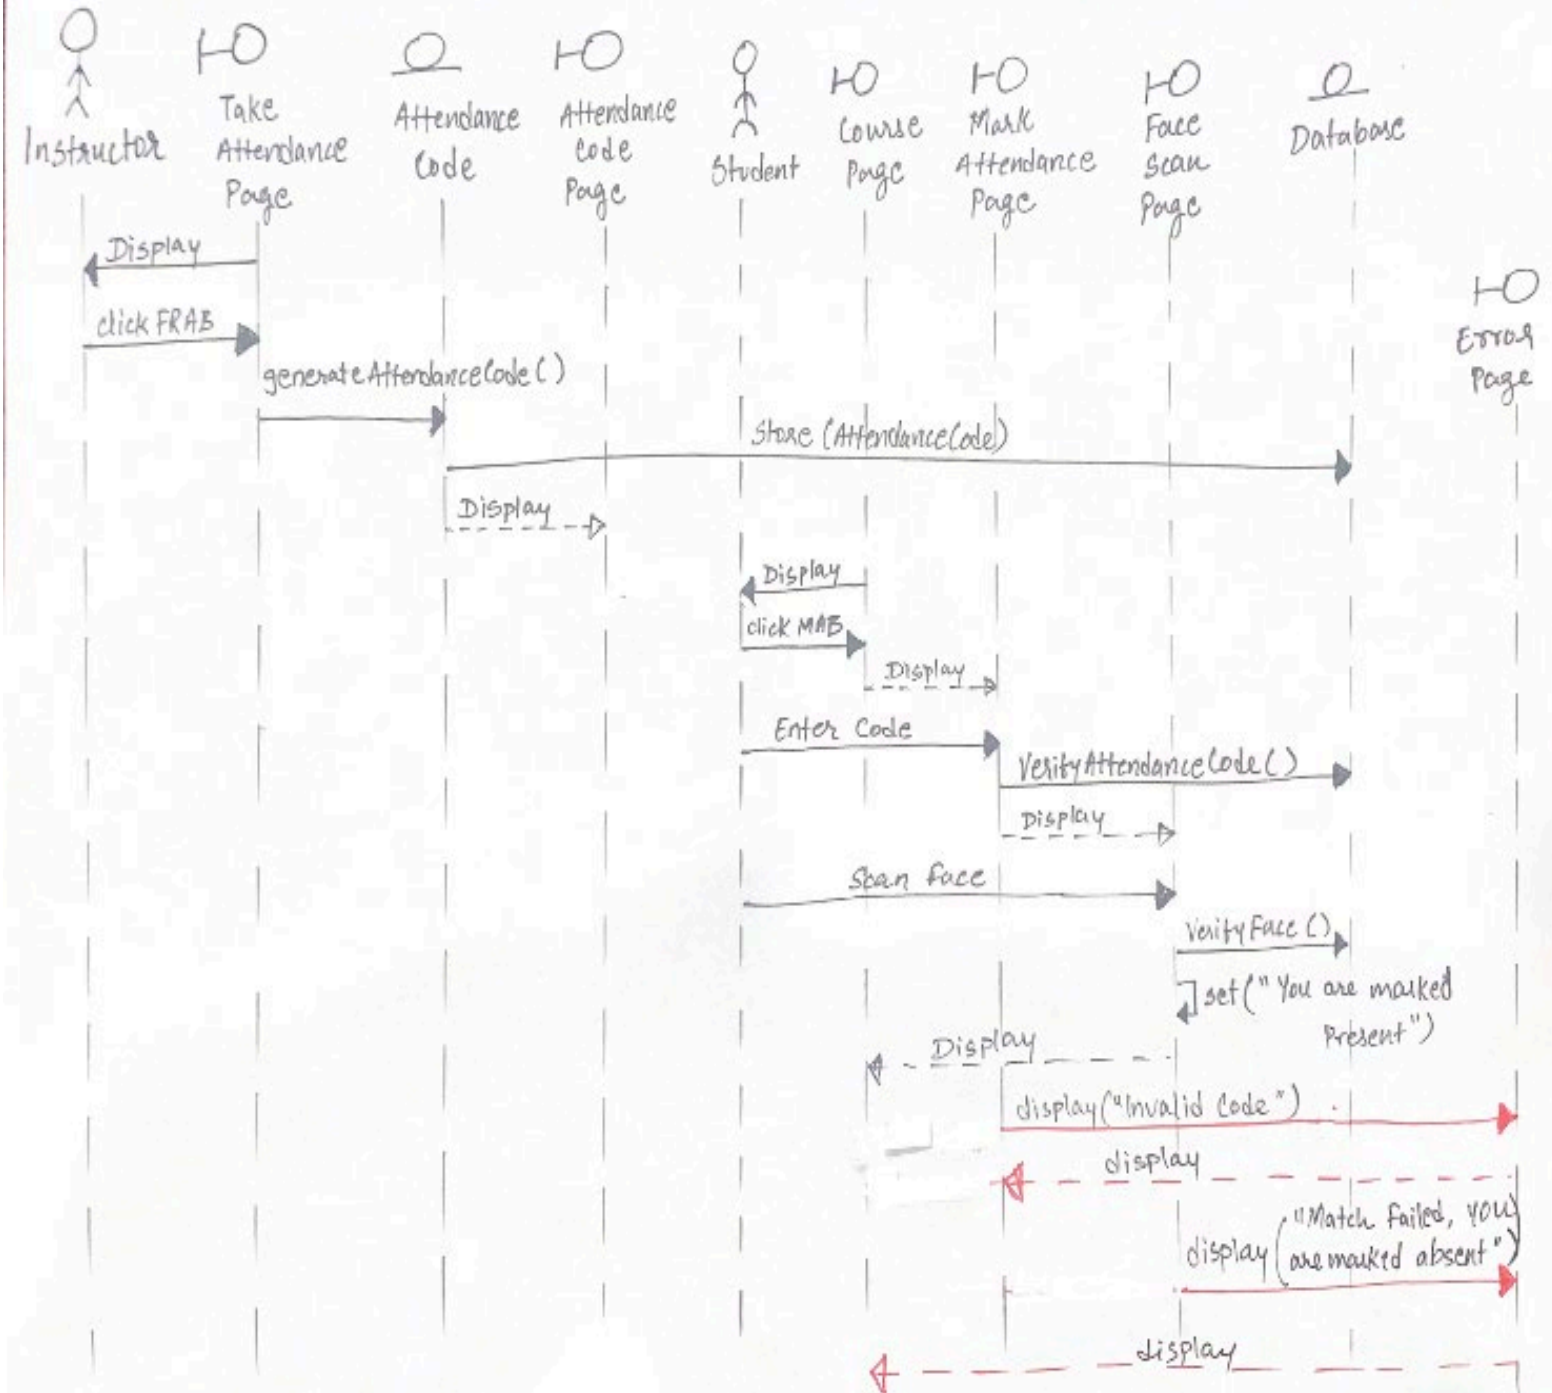 Instructor
Take
Attendance
Page
Attendance
Code
Attendance
Code
Page
Student
Course
Page
Mark
Attendance
Page
Face
Scan
Page
Database
Error
Page
Display
click FRAB
generateAttendanceCode()
Store (AttendanceCode)
Display
Display
click MAB
Display
Enter Code
VerifyAttendanceCode()
Display
Scan face
VerifyFace()
set("You are marked
Present")
Display
display("Invalid Code")
display
display("Match Failed, you
are marked absent")
display